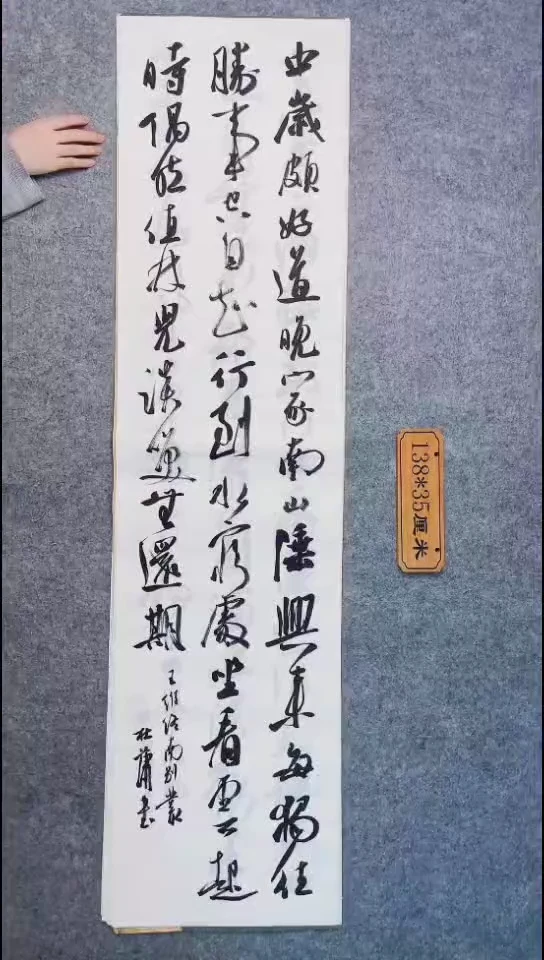 中歲頗好道晚家南山陲興來每獨往
勝事空自知行到水窮處坐看雲起
時偶然值林叟談笑無還期
王維終南別業
杜 書
138*35厘米